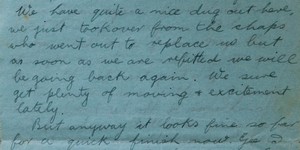 We have quite a nice dug out here,
we just took over from the chaps
who went out to replace us but
as soon as we are refitted we will
be going back again. We sure
get plenty of moving & excitement
lately.
But anyway it looks fine so far
for a quick finish now.